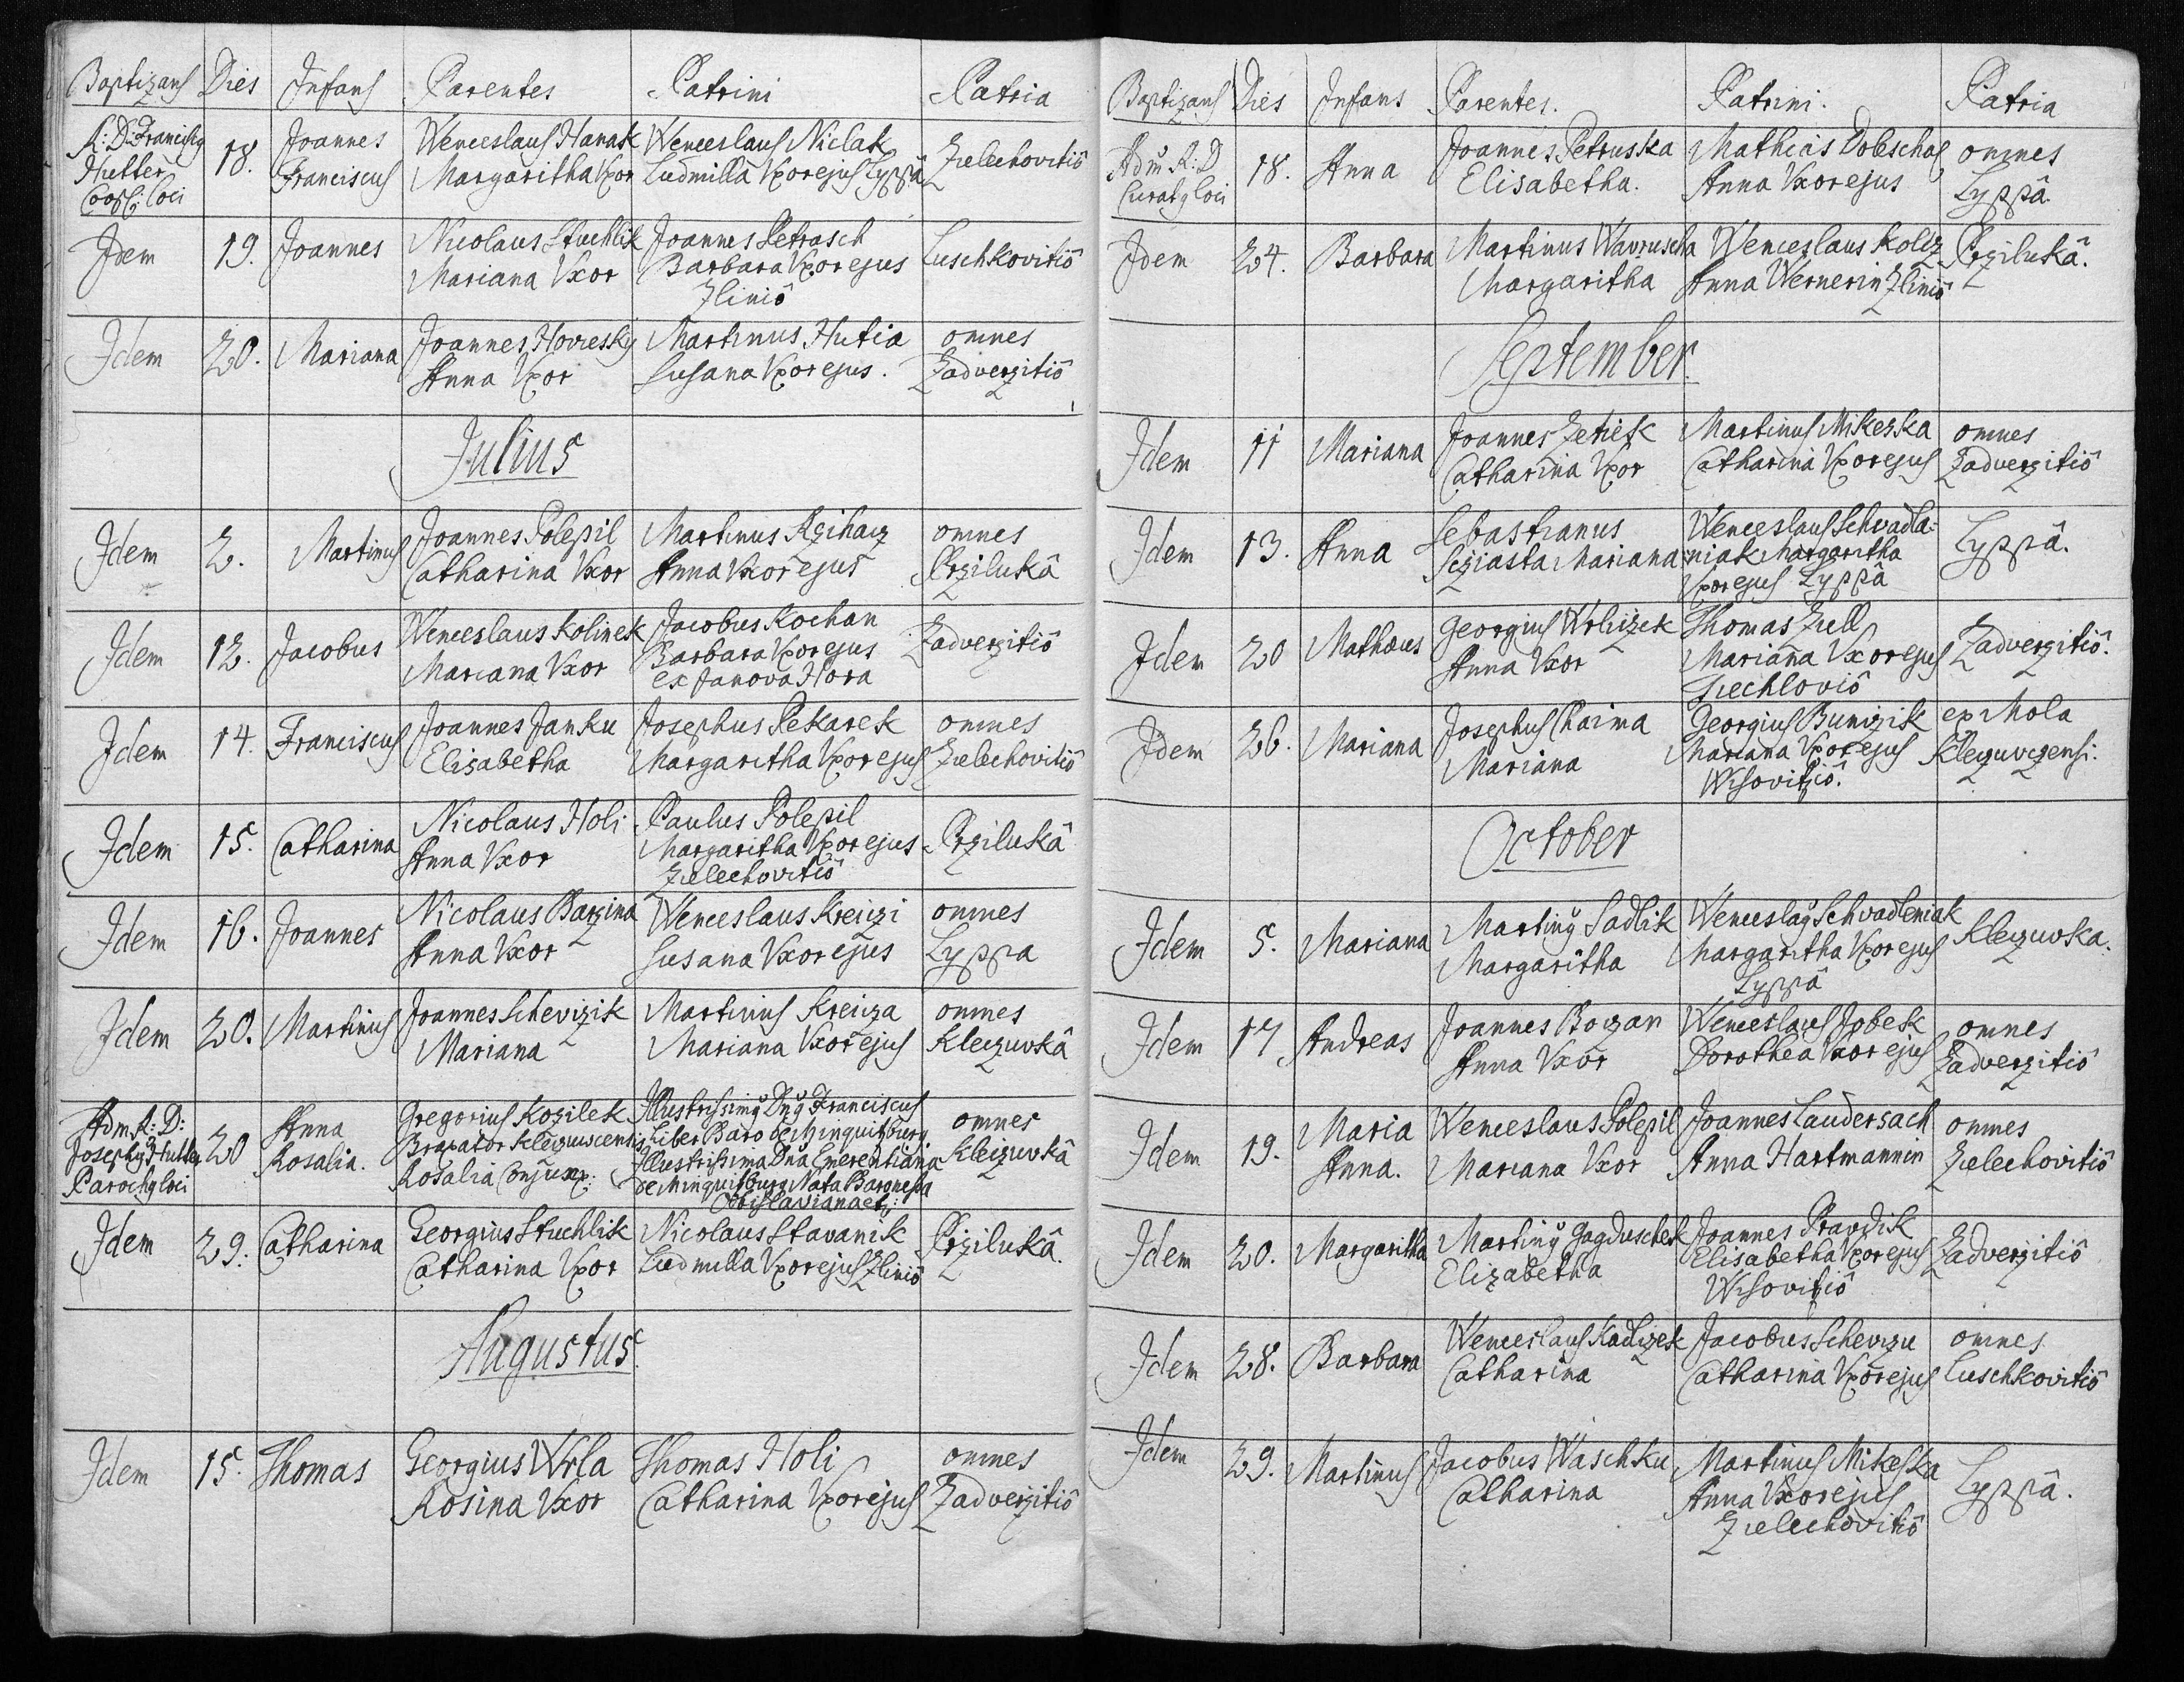 Baptizans Dies Infans Parentes Patrini Patria
R: D: Franciscq Hutter Coop: loci 18. Joannes Franciscus Wenceslaus Hanak Margaritha Vxor Wenceslaus Niclak Ludmilla Vxor ejus Lyppâ Zelechovitiô
Idem 19. Joannes Nicolaus Stuchlik Mariana Vxor Joannes Petrasch Barbara Vxor ejus Zliniô Luschkovitiô
Idem 20. Mariana Joannes Horresky Anna Vxor Martinus Hutia Susana Vxor ejus. omnes Zadverzitiô
Julius
Idem 2. Martinus Joannes Polepil Catharina Vxor Martinus Rzihacz Anna Vxor ejus omnes Przilukâ
Idem 12. Jacobus Wenceslaus Kolinek Mariana Vxor Jacobus Kochan Barbara Vxor ejus ex Janova Hora Zadverzitiô
Idem 14. Franciscus Joannes Janku Elisabetha Josephus Pekarek Margaritha Vxor ejus omnes Zelechovitiô
Idem 15. Catharina Nicolaus Holi Anna Vxor Paulus Polepil Margaritha Vxor ejus Zelechovitiô Przilukâ
Idem 16. Joannes Nicolaus Barzina Anna Vxor Wenceslaus Kreiczi Susana Vxor ejus omnes Lyppa
Idem 20. Martinus Joannes Schevczik Mariana Martinus Kreicza Mariana Vxor ejus omnes Kleczuvkâ
Adm R: D: Josephq Hutter Parochq loci 20 Anna Rosalia. Gregorius Kozilek Braxator Kleczuvcensis Rosalia Conjunx: Illustrissimq Dnq Franciscus Liber Baro de Minquitzburg Illustrissima Dna Emerentiana de Minquitzburg Nata Baronessa omnes Kleczuvkâ
Idem 29. Catharina Georgius Stuchlik Catharina Vxor Nicolaus Stavanik Ludmilla Vxor ejus Zliniô Przilukâ.
Augustus.
Idem 15. Thomas Georgius Wrla Rosina Vxor Thomas Holi Catharina Vxor ejus omnes Zadverzitiô
Baptizans Dies Infans Parentes. Patrini. Patria
Adm R: D Curatq loci 18. Anna Joannes Petruska Elisabetha. Mathias Dolescha Anna Vxor ejus omnes Lyppâ.
Idem 24. Barbara Martinus Wavruscha Margaritha Wenceslaus Koliz Anna Wernerin Zliniô Przilukâ.
September.
Idem 11 Mariana Joannes Zetiek Catharina Vxor Martinus Mikeska Catharina Vxor ejus omnes Zadverzitiô
Idem 13. Anna Sebastianus Sziasta Mariana Wenceslaus Schvadla=niak Margaritha Vxor ejus Lyppâ Lyppâ.
Idem 20 Mathæus Georgius Wrliczek Anna Vxor Thomas Zell Mariana Vxor ejus Zadverzitiô.
Idem 26. Mariana Josephus Chaima Mariana Georgius Bunczik Mariana Vxor ejus Wisovitziô. ex Mola Kleczuvczensi.
October
Idem 5. Mariana Martinq Sadlik Margaritha Wenceslaq Schvadleniak Margaritha Vxor ejus Lyppâ Kleczuvka.
Idem 17 Andreas Joannes Boczan Anna Vxor Wenceslaus Jobek Dorothea Vxor ejus omnes Zadverzitiô
Idem 19. Maria Anna. Wenceslaus Polepil Mariana Vxor Joannes Laudersach Anna Hartmannin omnes Zelechovitiô
Idem 20. Margaritha Martinq Gagduschek Elizabetha Joannes Pravdik Elisabetha Vxor ejus Wisovitziô Zadverzitiô
Idem 28. Barbara Wenceslaus Kadlczek Catharina Jacobus Schevczu Catharina Vxor ejus omnes Luschkovitiô
Idem 29. Martinus Jacobus Waschku Catharina Martinus Mikeska Anna Vxor ejus Zelechovitiô Lyppâ.